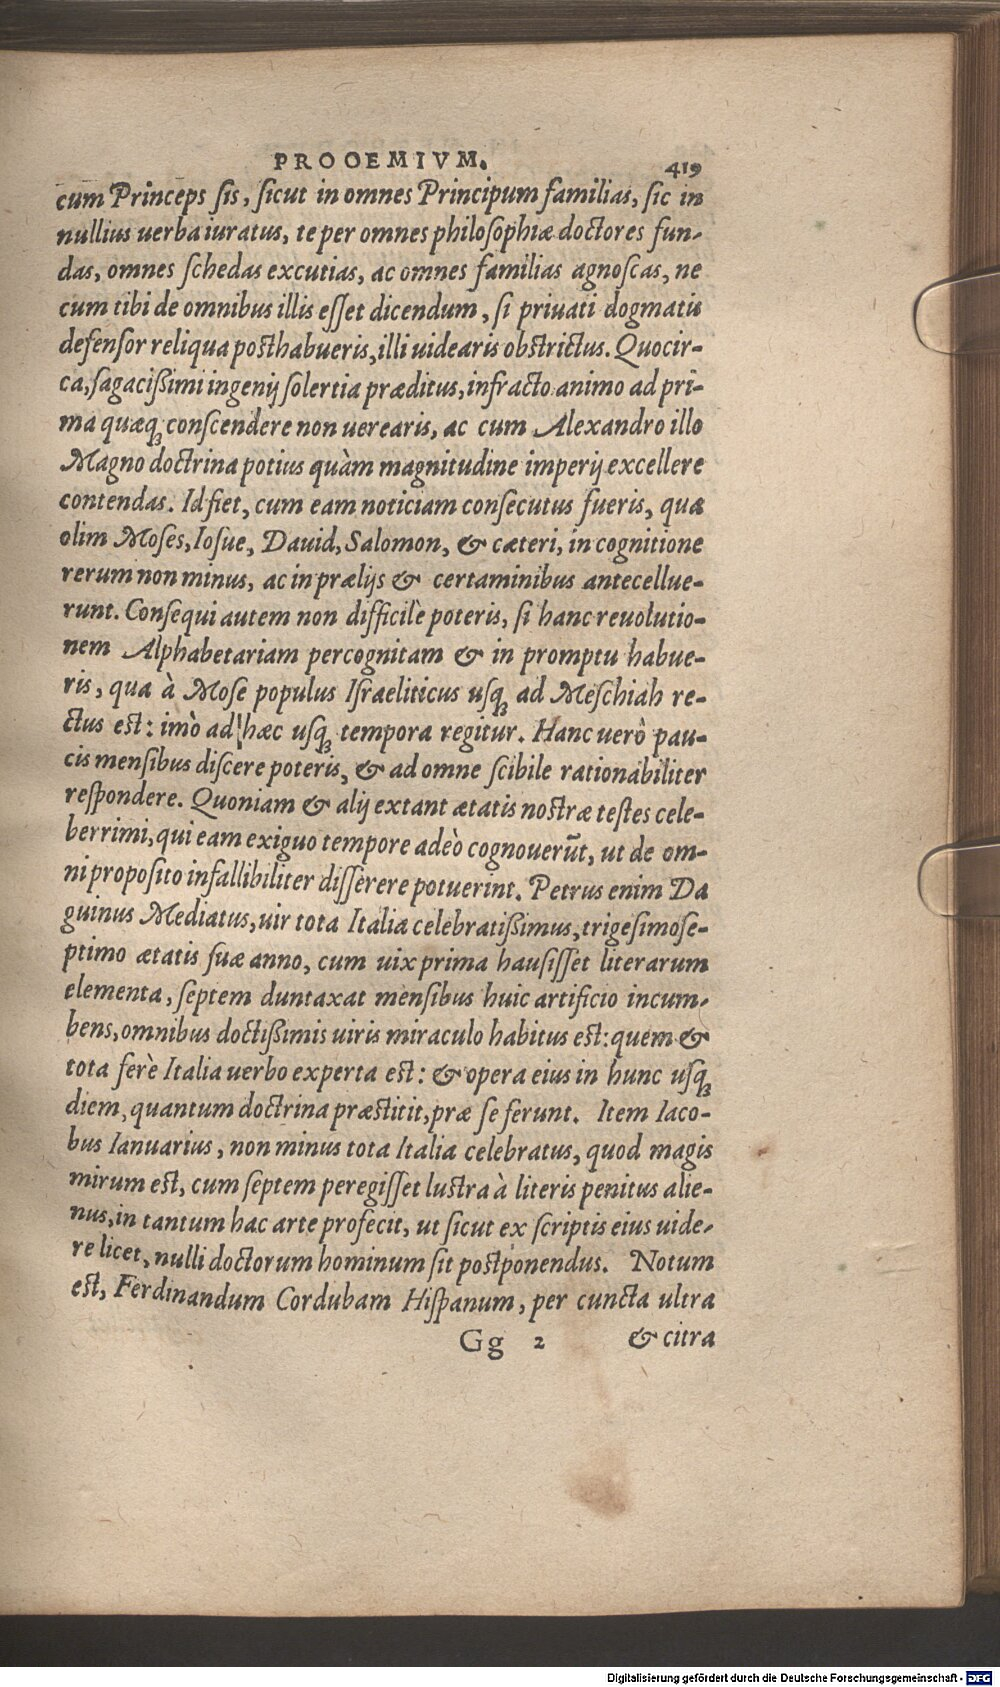 PROOEMIVM. 419
cum Princeps sis, sicut in omnes Principum familias, sic in
nullius uerba iuratus, te per omnes philosophiæ doctores fun-
das, omnes schedas excutias, ac omnes familias agnoscas, ne
cum tibi de omnibus illis esset dicendum, si priuati dogmatis
defensor reliqua posthabueris, illi uidearis obstrictus. Quocir-
ca, sagacißimi ingenij solertia præditus, infracto animo ad pri-
ma quæq; conscendere non uerearis, ac cum Alexandro illo
Magno doctrina potius quàm magnitudine imperij excellere
contendas. Id fiet, cum eam noticiam consecutus fueris, qua
olim Moses, Iosue, Dauid, Salomon, & cæteri, in cognitione
rerum non minus, ac in prælijs & certaminibus antecellue-
runt. Consequi autem non difficile poteris, si hanc reuolutio-
nem Alphabetariam percognitam & in promptu habue-
ris, qua à Mose populus Israeliticus usq; ad Meschiah re-
ctus est: imò ad hæc usq; tempora regitur. Hanc uerò pau-
cis mensibus discere poteris, & ad omne scibile rationabiliter
respondere. Quoniam & alij extant ætatis nostræ testes cele-
berrimi, qui eam exiguo tempore adeò cognouerūt, ut de om-
ni proposito infallibiliter disserere potuerint. Petrus enim Da
guinus Mediatus, uir tota Italia celebratißimus, trigesimose-
ptimo ætatis suæ anno, cum uix prima hausisset literarum
elementa, septem duntaxat mensibus huic artificio incum-
bens, omnibus doctißimis uiris miraculo habitus est: quem &
tota ferè Italia uerbo experta est: & opera eius in hunc usq;
diem, quantum doctrina præstitit, præ se ferunt. Item Iaco-
bus Ianuarius, non minus tota Italia celebratus, quod magis
mirum est, cum septem peregisset lustra à literis penitus alie-
nus, in tantum hac arte profecit, ut sicut ex scriptis eius uide-
re licet, nulli doctorum hominum sit postponendus. Notum
est, Ferdinandum Cordubam Hispanum, per cuncta ultra
Gg 2 & citra
Digitalisierung gefördert durch die Deutsche Forschungsgemeinschaft - DFG